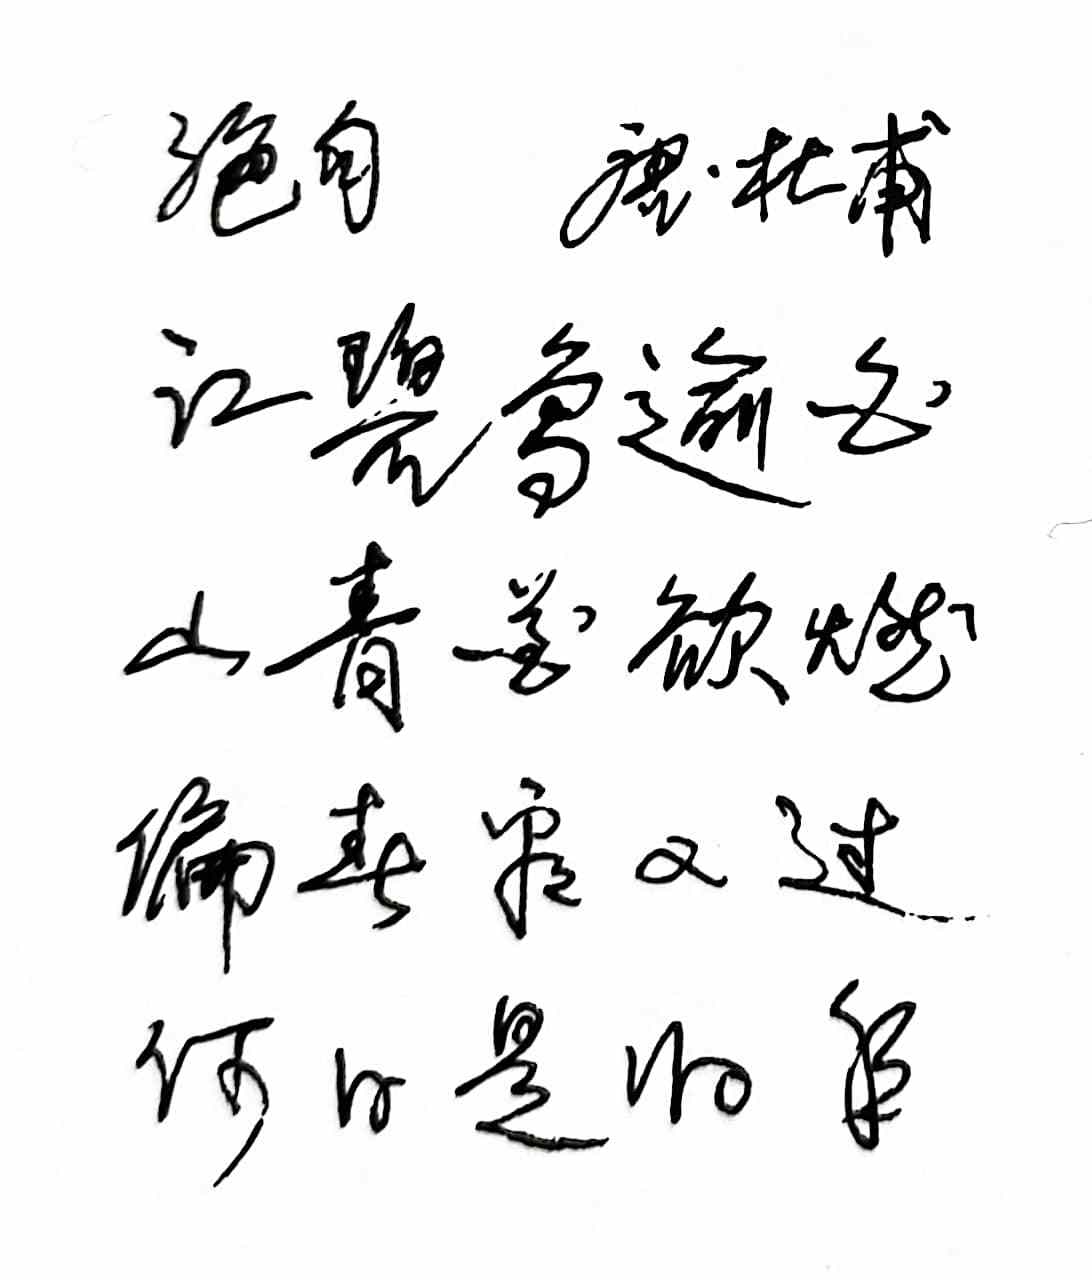 绝句 唐·杜甫
江碧鸟逾白
山青花欲燃
偏春看又过
何日是归年